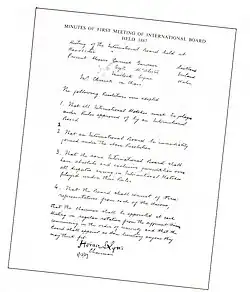 MINUTES OF FIRST MEETING OF INTERNATIONAL BOARD
HELD 1887
Meeting of the International Board held at
Present Messrs Gardiner Scotland
Lyle McAlister Ireland
Lyne Wales
in Chair
The following Resolutions were adopted
1. That all International Matches must be played
under Rules approved of by an International
Board
2. That an International Board be immediately
formed under the above Resolution
3. That the said International Board shall
have absolute and exclusive jurisdiction over
all disputes arising in International Matches
played under their Rules.
4. That the Board shall consist of three
representatives from each of the Unions,
that the Chairman shall be appointed at each
Meeting in regular rotation from the
in the order of seniority and that the
Board shall appoint as their Secretary anyone they
may think fit.
Horace Lyne
Chairman